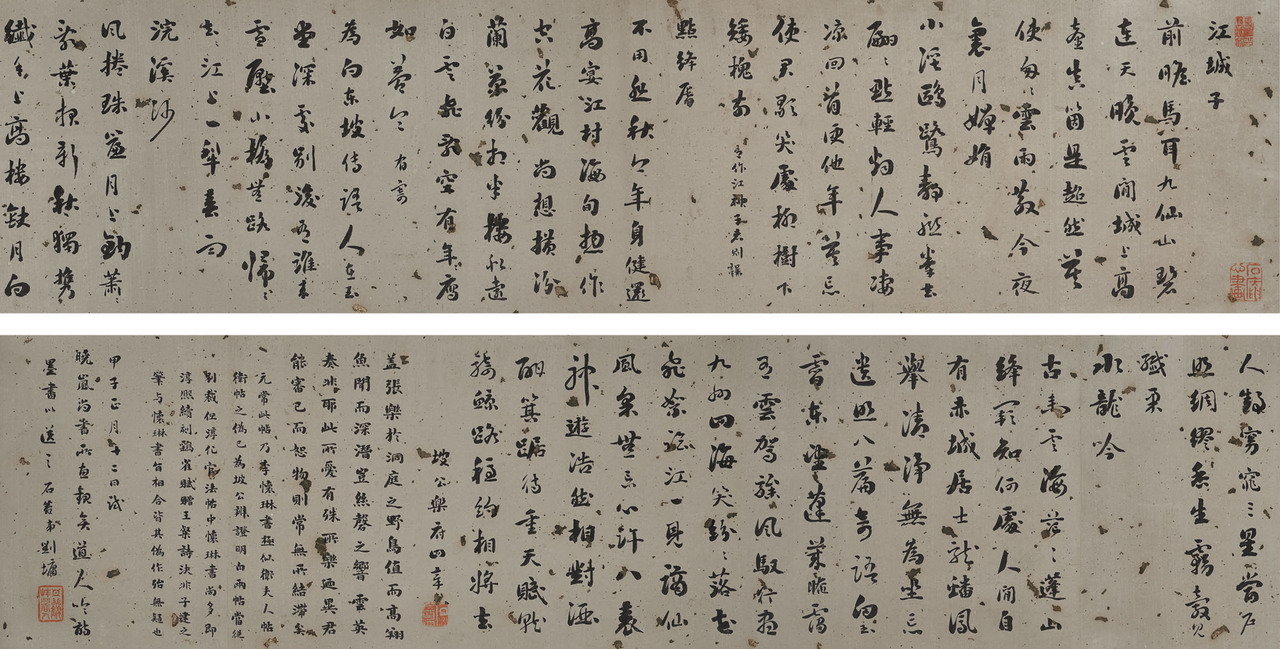 江城子
前瞻馬耳九仙山碧
連天晚雲閒城上高
臺真箇是超然莫
使匆〻雲雨散今夜
裏月嬋娟
小溪鷗鷺靜聯拳去
翩〻點輕烟人事凄
凉回首便他年莫忘
使君歌笑處柳樹下
矮槐前
點絳唇
不用悲秋今年身健還
高宴江村海甸總作
空花觀尚想橫汾
蘭菊紛相半樓船遠
白雲飛亂空有年鴈
如夢令 有寄
為向東坡傳語人在玉
堂深處別後有誰來
雪壓小橋無路歸〻
去〻江上一犁春雨
浣溪沙
風捲珠簾月上鈎蕭〻
亂葉報新秋獨攜
纖手上高樓缺月向
人舒窈窕三星當户
照綢繆香生霧縠見
纖柔
水龍吟
古來雲海茫〻蓬山
絳闕知何處人間自
有赤城居士龍蟠鳳
舉清淨無為坐忘
遺照八篇奇語向玉
霄東望蓬萊晻靄
有雲駕驂風馭行盡
九州四海笑紛〻落花
飛絮臨江一見謫仙
風采無言心許八表
神遊浩然相對酒
酣箕踞待垂天賦就
騎鯨路穩約相將去
坡公樂府四章
蓋張樂於洞庭之野鳥值而高翔
魚聞而深潛豈無罄之響雲英
奏非耶此所愛有殊所樂廼異君
能審己而恕物則常無所結滯矣
元常此帖乃李懷琳書極似衛夫人帖
衛帖之偽已為坡公辨證明白兩帖當從
刊裁但淳化官法帖中懷琳書尚多即
淳熙續刻鷂雀賦贈王粲詩決非子建之
筆与懷琳書皆相合皆其偽作殆無疑也
甲子正月十二日試
晚嵐尚書所惠
墨書以送之石菴弟劉墉